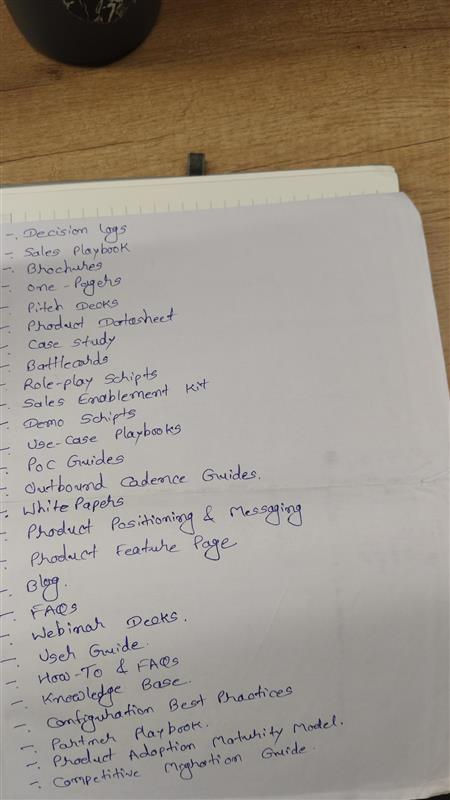 -. Decision logs
-. Sales Playbook
-. Brochures
-. One-Pagers
-. Pitch Decks
-. Product Datasheet
-. Case study
-. Battlecards
-. Role-play Scripts
-. Sales Enablement Kit
-. Demo Scripts
-. Use-Case Playbooks
-. PoC Guides
-. Outbound Cadence Guides.
-. White Papers
-. Product Positioning & Messaging
-. Product Feature Page
-. Blog.
-. FAQs
-. Webinar Decks.
-. User Guide.
-. How-To & FAQs
-. Knowledge Base.
-. Configuration Best Practices
-. Partner Playbook.
-. Product Adoption Maturity Model.
-. Competitive Migration Guide.